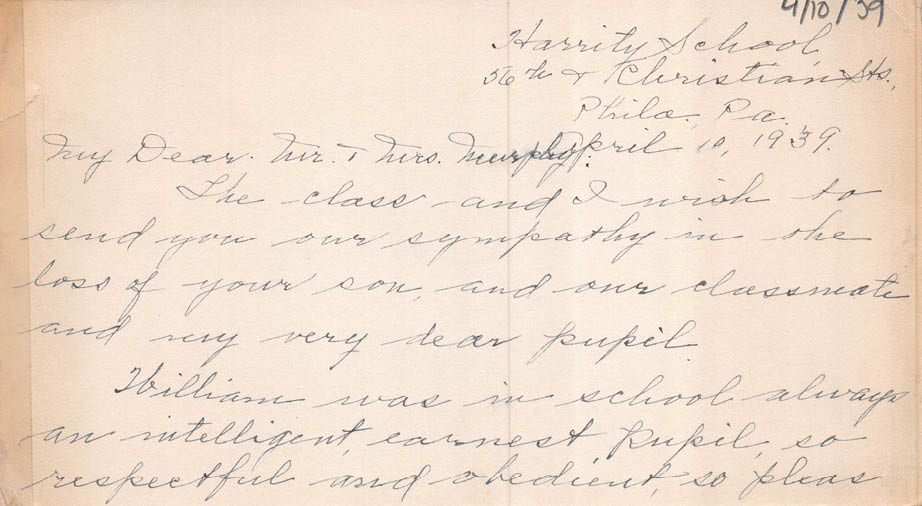 4/10/39
Harrity School,
56th & Christian Sts.,
Phila., Pa.
April 10, 1939.
My Dear Mr. & Mrs. Murphy:
The class and I wish to
send you our sympathy in the
loss of your son, and our classmate
and my very dear pupil.
William was in school always
an intelligent, earnest pupil, so
respectful and obedient, so pleas